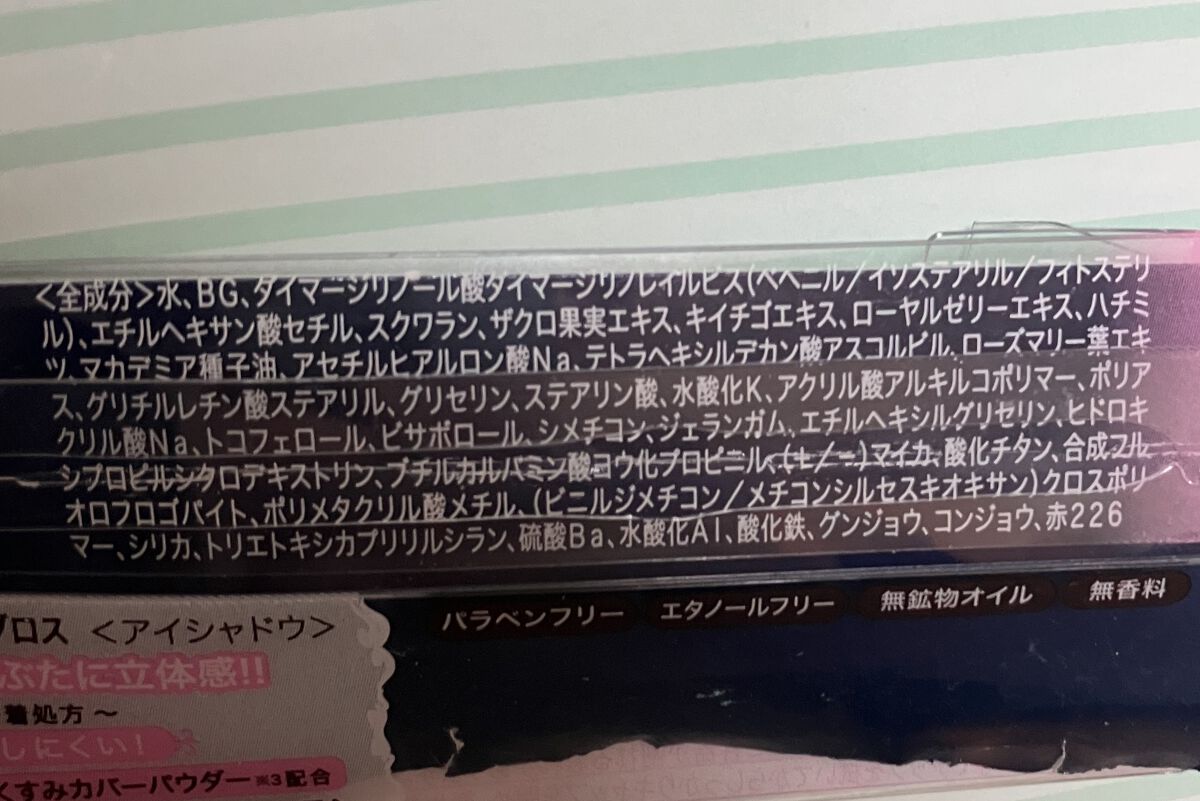 <全成分>水、BG、ダイマージリノール酸ダイマージリノレイルビス(ベヘニル/イソステアリル/フィトステリ
ル)、エチルヘキサン酸セチル、スクワラン、ザクロ果実エキス、キイチゴエキス、ローヤルゼリーエキス、ハチミ
ツ、マカデミア種子油、アセチルヒアルロン酸Na、テトラヘキシルデカン酸アスコルビル、ローズマリー葉エキ
ス、グリチルレチン酸ステアリル、グリセリン、ステアリン酸、水酸化K、アクリル酸アルキルコポリマー、ポリア
クリル酸Na、トコフェロール、ビサボロール、シメチコン、ジェランガム、エチルヘキシルグリセリン、ヒドロキ
シプロピルシクロデキストリン、ブチルカルバミン酸ヨウ化プロピニル、(+/-)マイカ、酸化チタン、合成フル
オロフロゴパイト、ポリメタクリル酸メチル、(ビニルジメチコン/メチコンシルセスキオキサン)クロスポリ
マー、シリカ、トリエトキシカプリリルシラン、硫酸Ba、水酸化Al、酸化鉄、グンジョウ、コンジョウ、赤226
パラベンフリー エタノールフリー 無鉱物オイル 無香料
グロス <アイシャドウ>
ぶたに立体感!!
着処方～
しにくい!
くすみカバーパウダー※3配合